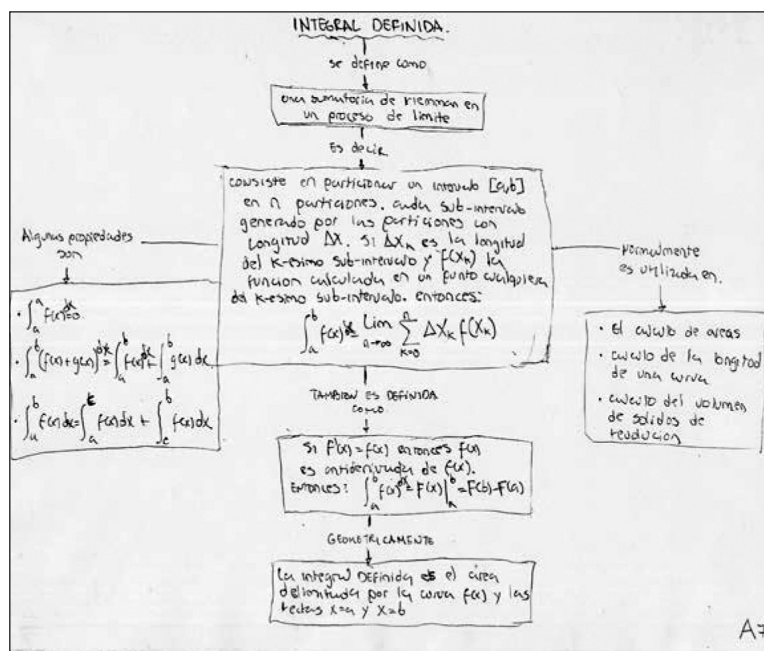 INTEGRAL DEFINIDA.
se define como
una sumatoria de riemman en
un proceso de limite
Es decir
consiste en particionar un intervalo [a,b]
en n particiones. cada sub-intervalo
generado por las particiones con
longitud ΔX. Si ΔX_k es la longitud
del k-esimo sub-intervalo y f(X_k) la
funcion calculada en un punto cualquiera
del k-esimo sub-intervalo. entonces:
∫_a^b f(x)dx = Lim_{n→∞} ∑_{k=0}^n ΔX_k f(X_k)
Algunas propiedades
son
· ∫_a^a f(x)dx=0
· ∫_a^b (f(x)+g(x))dx = ∫_a^b f(x)dx + ∫_a^b g(x)dx
· ∫_a^b f(x)dx = ∫_a^c f(x)dx + ∫_c^b f(x)dx
Normalmente
es utilizada en.
• El calculo de areas
• calculo de la longitud
de una curva
• calculo del volumen
de solidos de
revolucion
TAMBIEN ES DEFINIDA
como
Si F'(x) = f(x) entonces f(x)
es antiderivada de f(x).
ENTONCES: ∫_a^b f(x)dx = F(x)|_a^b = F(b)-F(a)
GEOMETRICAMENTE
La integral DEFINIDA es el área
delimitada por la curva f(x) y las
rectas x=a y x=b
A7